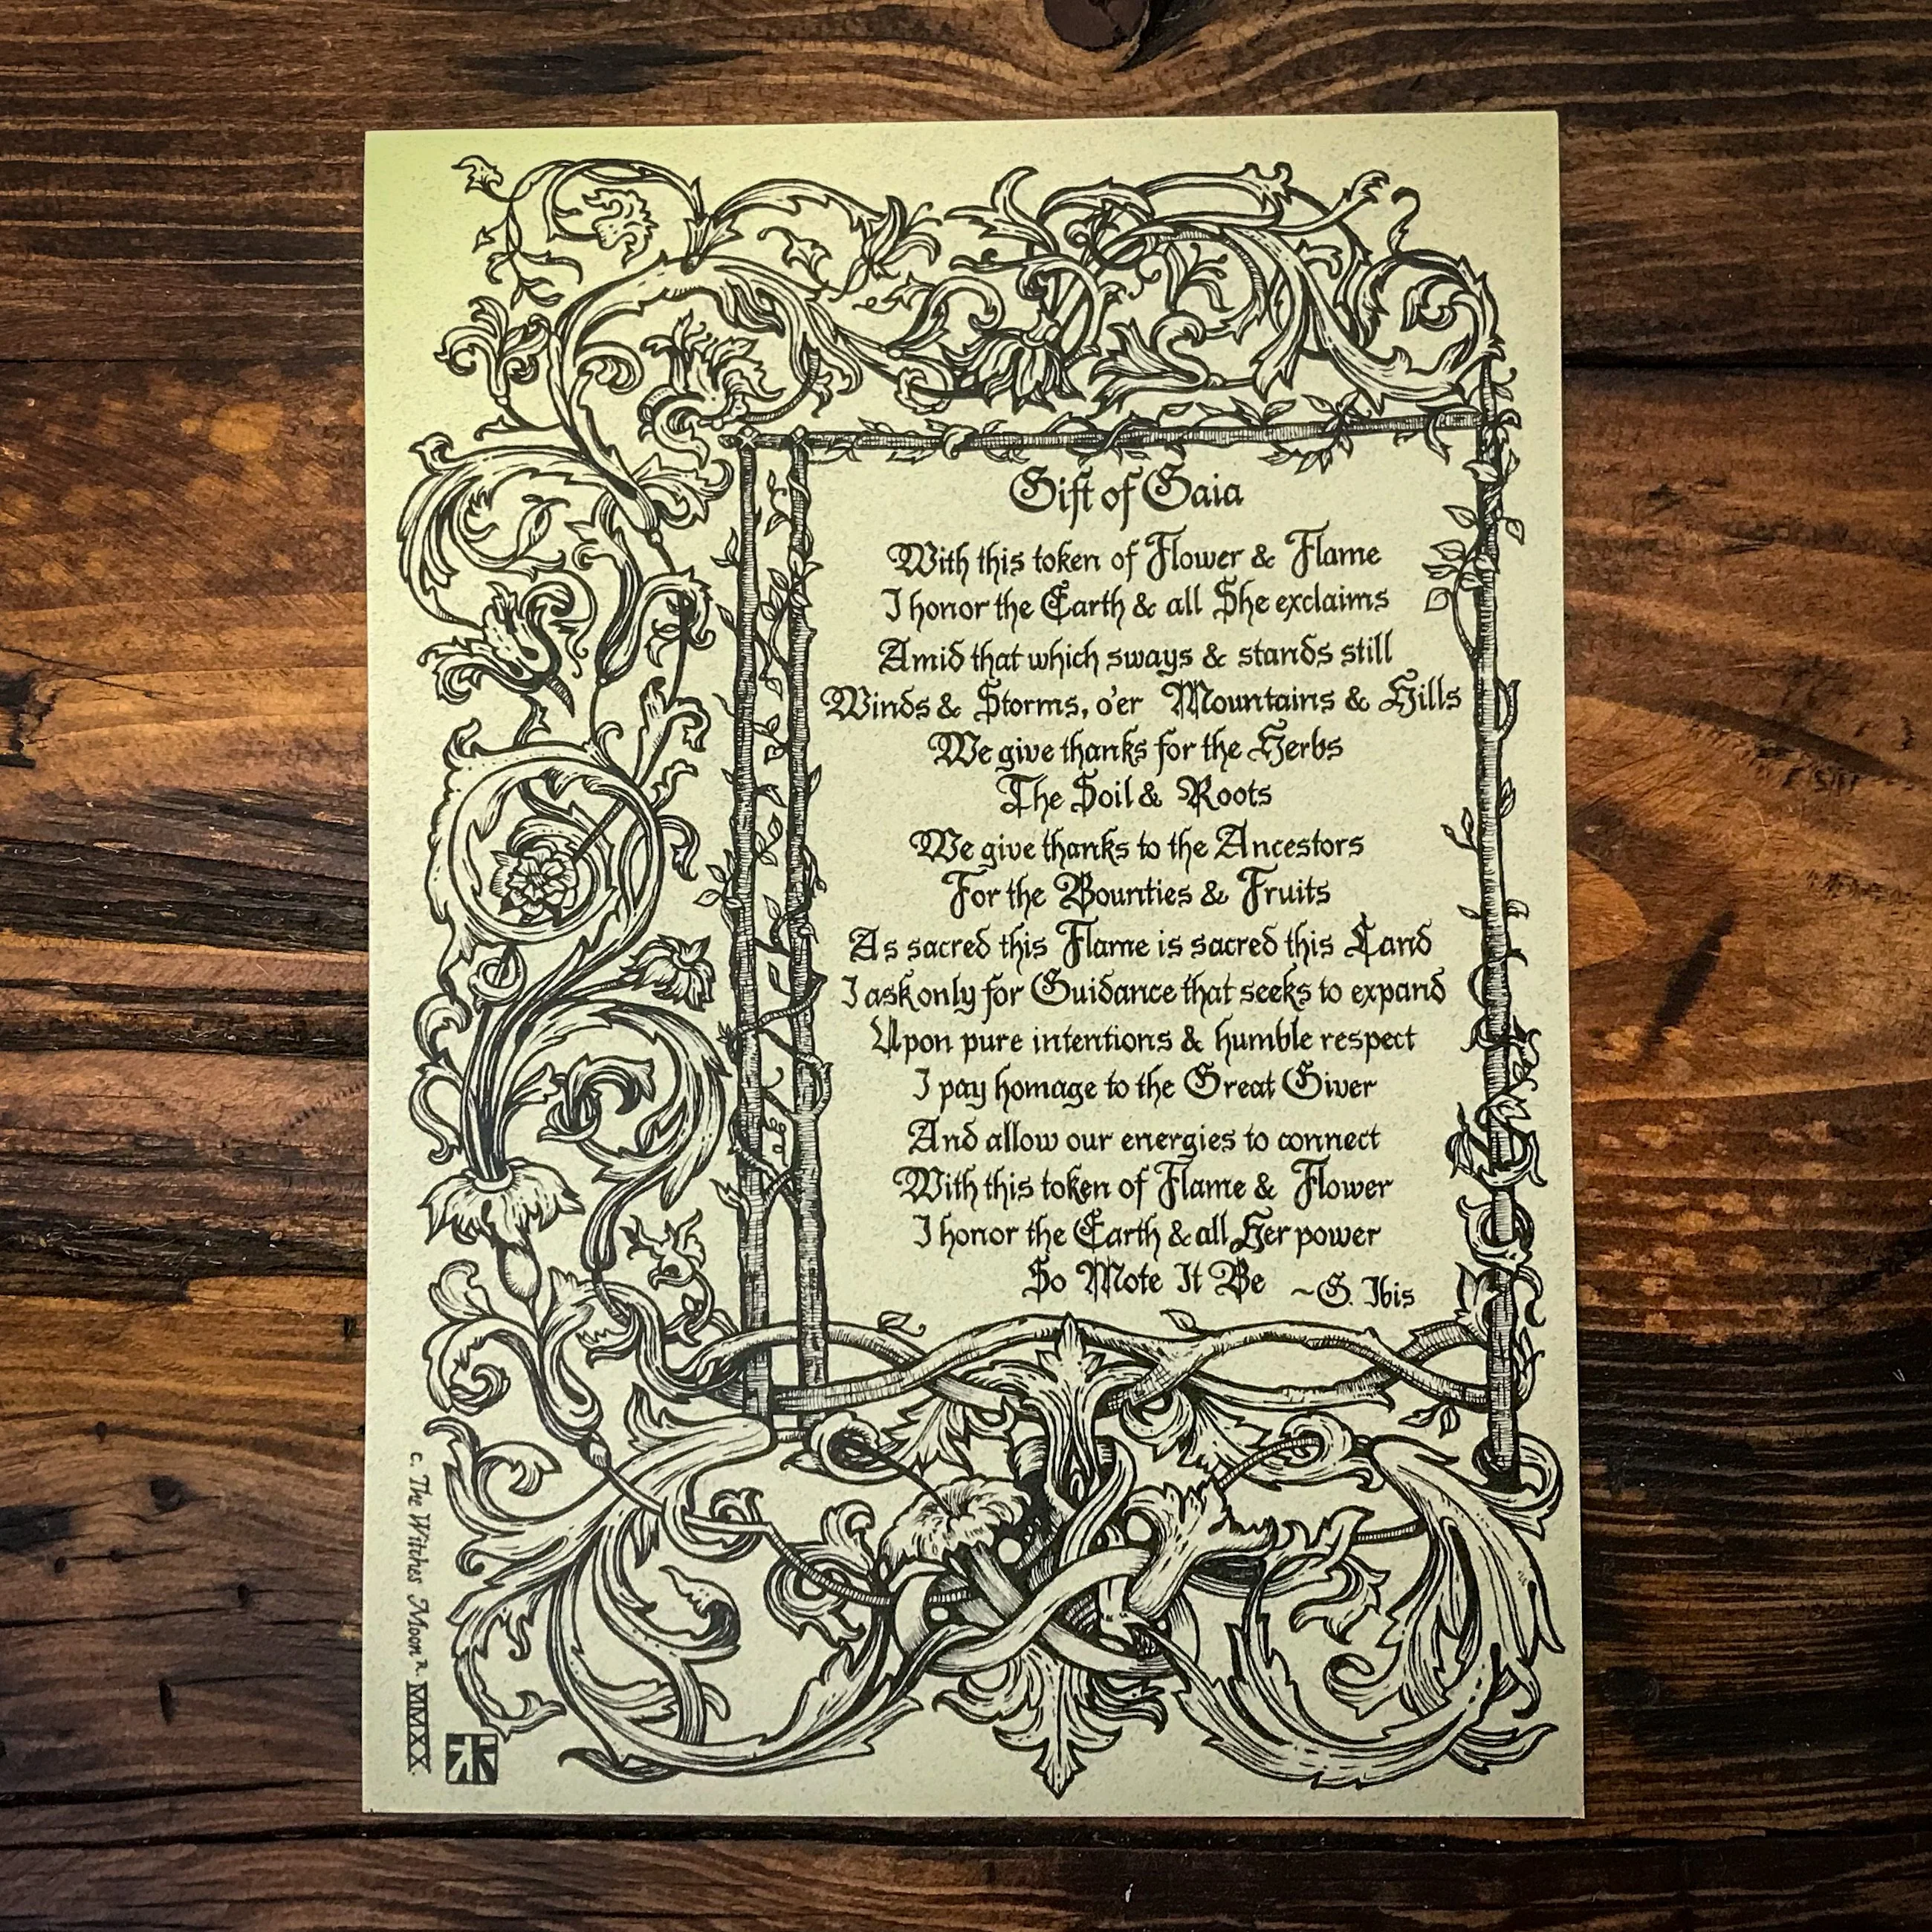 Gift of Gaia
With this token of Flower & Flame
I honor the Earth & all She exclaims
Amid that which sways & stands still
Winds & Storms, o'er Mountains & Hills
We give thanks for the Herbs
The Soil & Roots
We give thanks to the Ancestors
For the Bounties & Fruits
As sacred this Flame is sacred this Land
I ask only for Guidance that seeks to expand
Upon pure intentions & humble respect
I pay homage to the Great Giver
And allow our energies to connect
With this token of Flame & Flower
I honor the Earth & all Her power
So Mote It Be ~G. Ibis
c. The Witches Moon R. MMXX